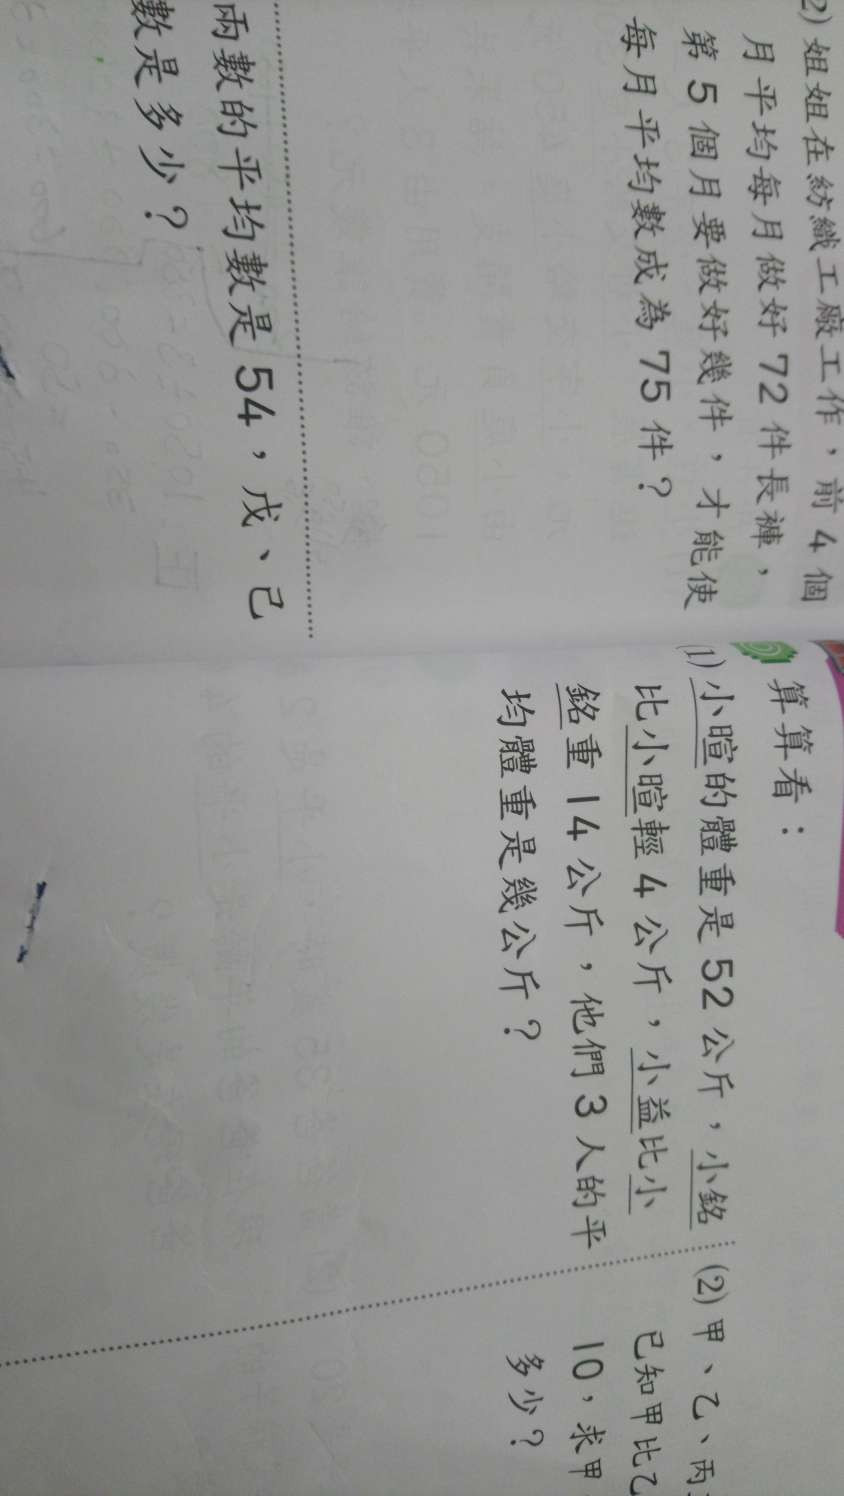 2) 姐姐在紡織工廠工作，前 4 個
月平均每月做好 72 件長褲，
第 5 個月要做好幾件，才能使
每月平均數成為 75 件？
兩數的平均數是 54，戊、己
數是多少？
算算看：
(1) 小暄的體重是 52 公斤，小銘
比小暄輕 4 公斤，小益比小
銘重 14 公斤，他們 3 人的平
均體重是幾公斤？
(2) 甲、乙、丙
已知甲比乙
10，求甲
多少？